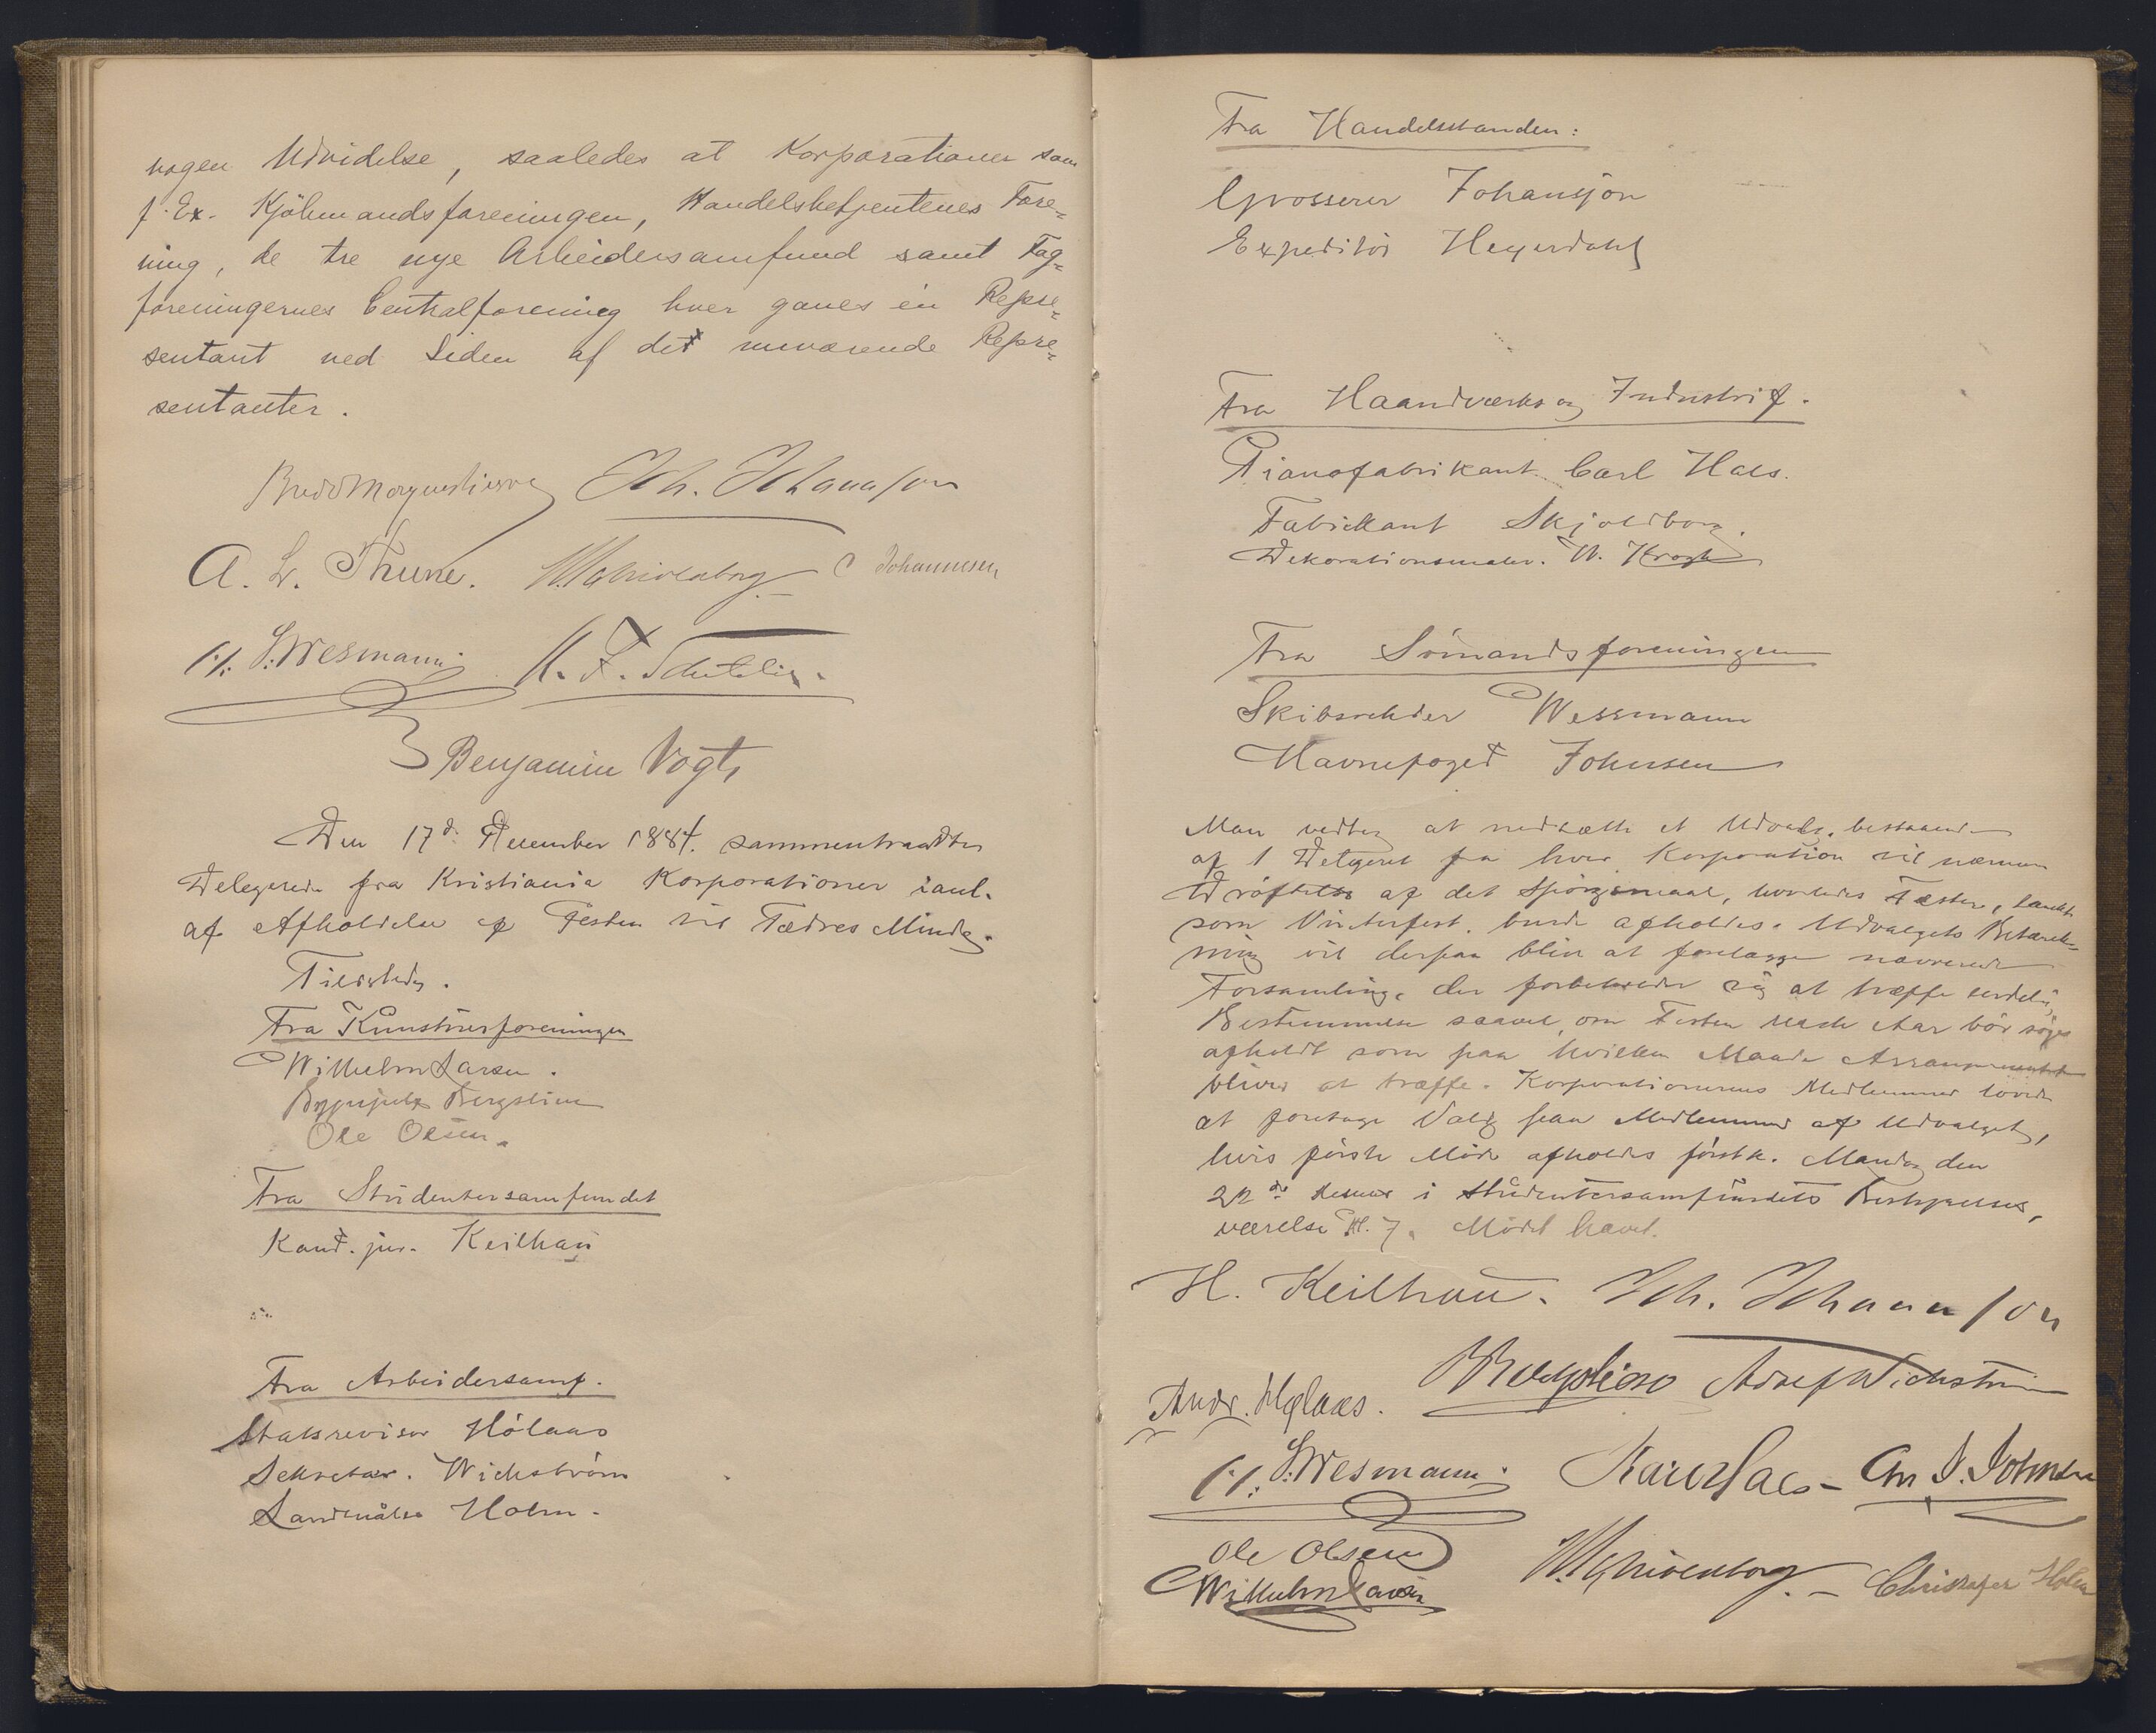 nogen Udvidelse, saaledes at Korporationer som
f. Ex. Kjöbmandsforeningen, Handelsbetjentenes Fore=
ning, de tre nye Arbeidersamfund samt Fag=
foreningernes Centralforening hver gaves én Repræ=
sentant ved Siden af det nuværende Repræ=
sentanter.
Bredo Morgenstierne Joh. Johannson
A. L. Thune. C Johannesen
S. Wesmann
Benjamin Vogt,
Den 17d. December 1884. sammentraadte
Delegerede fra Kristiania Korporationer i anl.
af Afholdelse af Festen til Fædres Minde.
Tilstede.
Fra Kunstnerforeningen
Wilhelm Larsen.
Bergslien
Ole Olsen.
Fra Studentersamfundet
Kand. jur. Keilhau
Fra Arbeidersamf.
Statsrevisor Hölaas
Sekretær. Wichström
Landmåler Holm.
Fra Handelsstanden:
Grosserer Johansson
Expeditör Heyerdahl
Fra Haandværks og Industrif.
Pianofabrikant Carl Hals.
Fabrikant Skjoldborg.
Dekorationsmaler. W. Krogh
Fra Sömandsforeningen
Skibsreder Wessmann
Havnefoged Johnsen
Man vedtog at nedsætte et Udvalg, bestaaende
af 1 Delegeret fra hver Korporation til nærmere
Dröftelse af det Spörgsmaal, hvorledes Festen, tænkt
som Vinterfest, burde afholdes. Udvalgets Betænk=
ning vil derpaa blive at forelægge nærværende
Forsamling, der forbeholder sig at træffe endelig
Bestemmelse saavel om Festen dette Aar bör söges
afholdt som paa hvilken Maade Arrangementet
bliver at træffe. Korporationernes Medlemmer lovede
at foretage Valg paa Medlemmer af Udvalget,
hvis förste Möde afholdes förstk. Mandag den
22de i Studentersamfundets Bestyrelses,
værelse Kl. 7. Mödet hævet.
H. Keilhau. Joh. Johannson
Andr. Hølaas. Bergslien Adolf Wichström
S. Wesmann Karl Hals - Chr. S. Johnsen
Ole Olsen
Wilhelm Larsen Christofer Holm